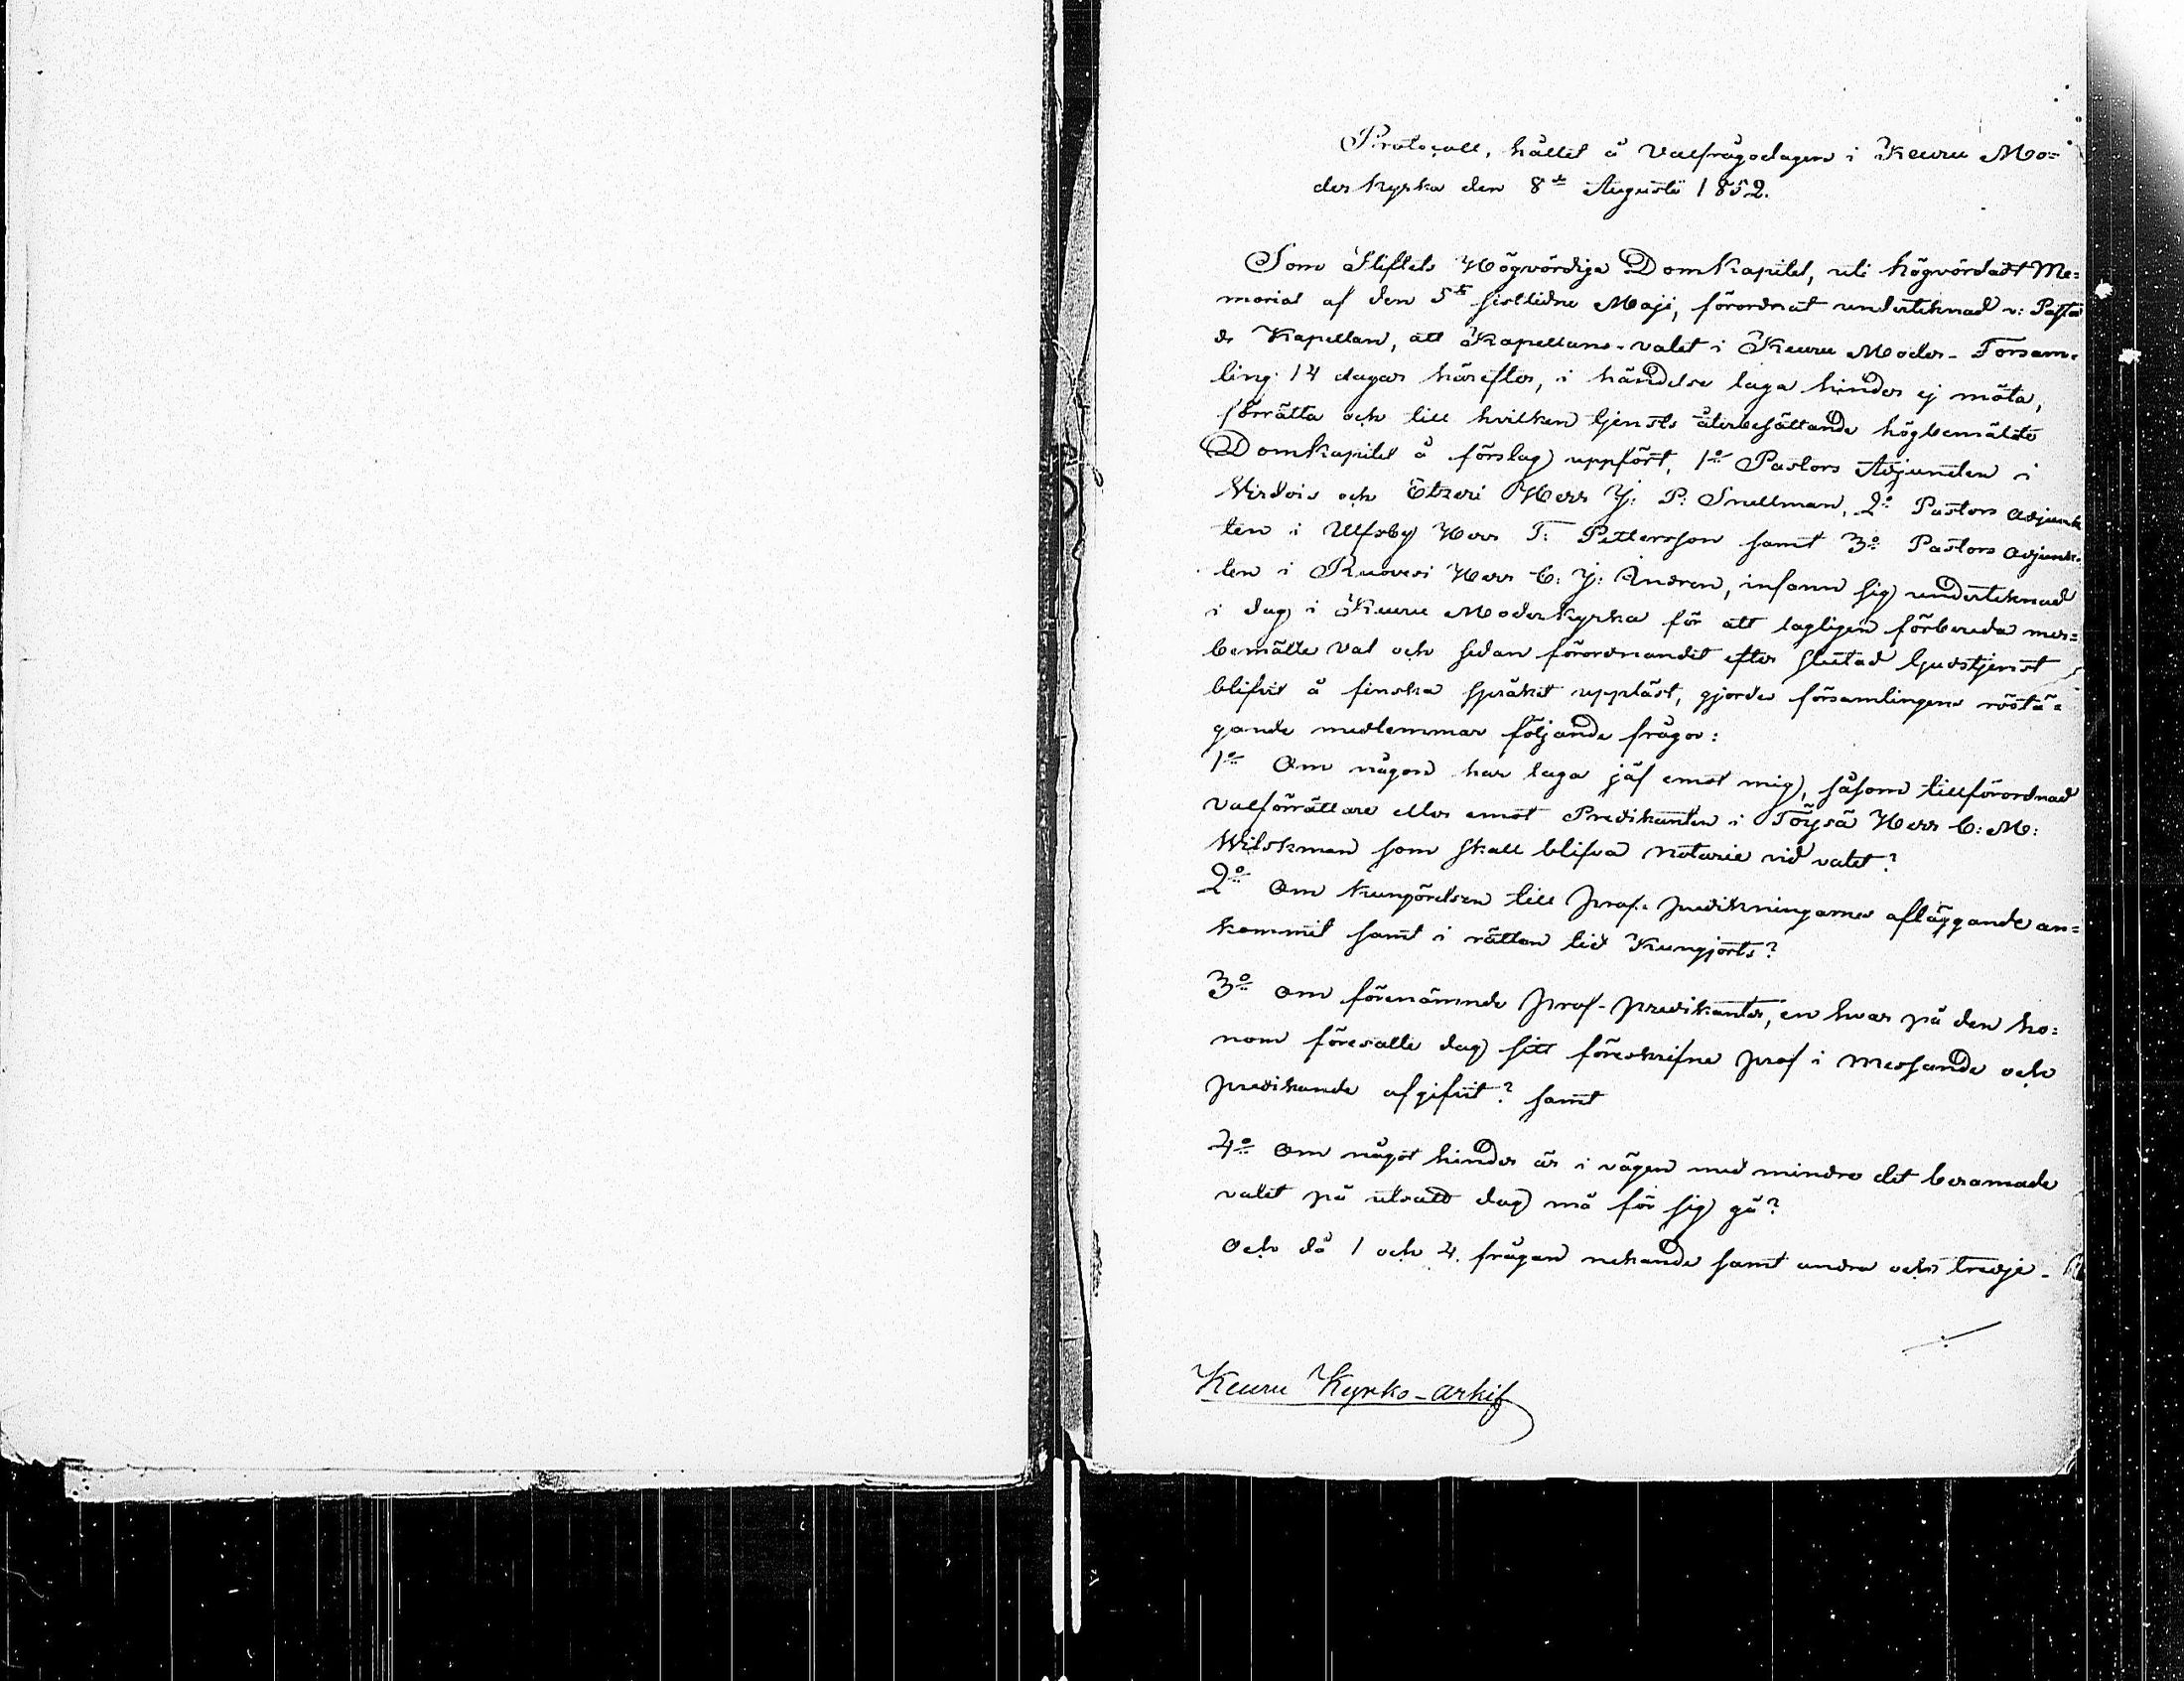 Protocall, hållet å Valfrågodagen i Keuru Mo=
derkyrka den 8de Augusti 1852.
Som Stiftets Högvördiga DomKapitel, uti högvördadt Me=
morial af den 5te sistlidne Maji, förordnat undertecknad v: Pastor
& Kapellan, att Kapellans-valet i Keuru Moder-Försam-
ling 14 dagar härefter, i händelse laga hinder ej möta,
förrätta och till hvilken tjensts återbesättande högbemälte
DomKapitel å förslag uppfört, 1o Pastors Adjuncten i
Virdois och Etzeri Herr J: P: Snellman, 2o Pastors adjunk
ten i Ulfsby Herr T: Pettersson samt 3o Pastors adjunk-
ten i Ruovesi Herr C: J: Andren, infann sig undertecknad
i dag i Keuru Moderkyrka för att lagligen förbereda mer=
bemälte val och sedan förordnandet efter slutad gudstjenst
blifvit å finska språket uppläst, gjordes församlingens röstä=
gande medlemmar följande frågor:
1o Om någon har laga jäf emot mig, såsom tillförordnad
valförrättare eller emot Predikanten i Töysä Herr C: M:
Wilskman som skall blifva notarie vid valet?
2o Om kungörelsen till prof-predikningarnes afläggande an=
kommit samt i rättan tid kungjorts?
3o Om förenämnde prof-predikanter, en hvar på den ho=
nom föresatte dag sitt föreskrifne prof i messande och
predikande afgifvit? samt
4o Om något hinder är i vägen med mindre det beramade
valet på utsatt dag må för sig gå?
Och då 1 och 4. frågan nekande samt andra och tredje-
Keuru Kyrko-arkif